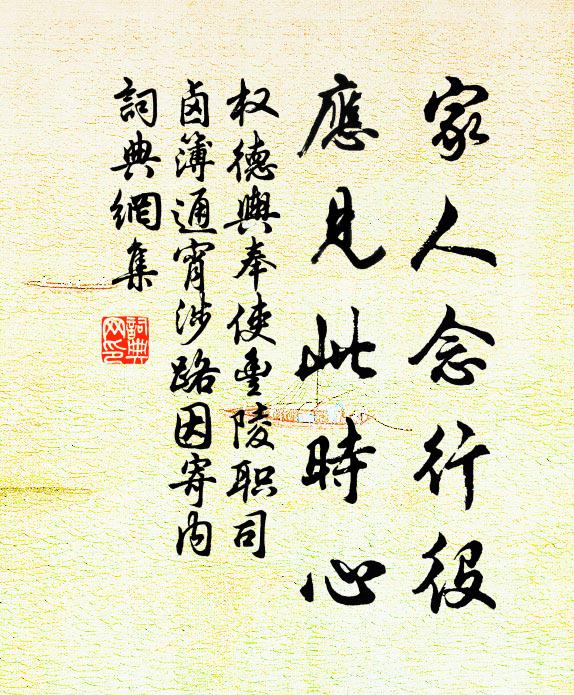 家人念行役
應見此時心
权德輿奉使豐陵职司
鹵簿通宵涉路因寄内
詞典網集
詞典
网印